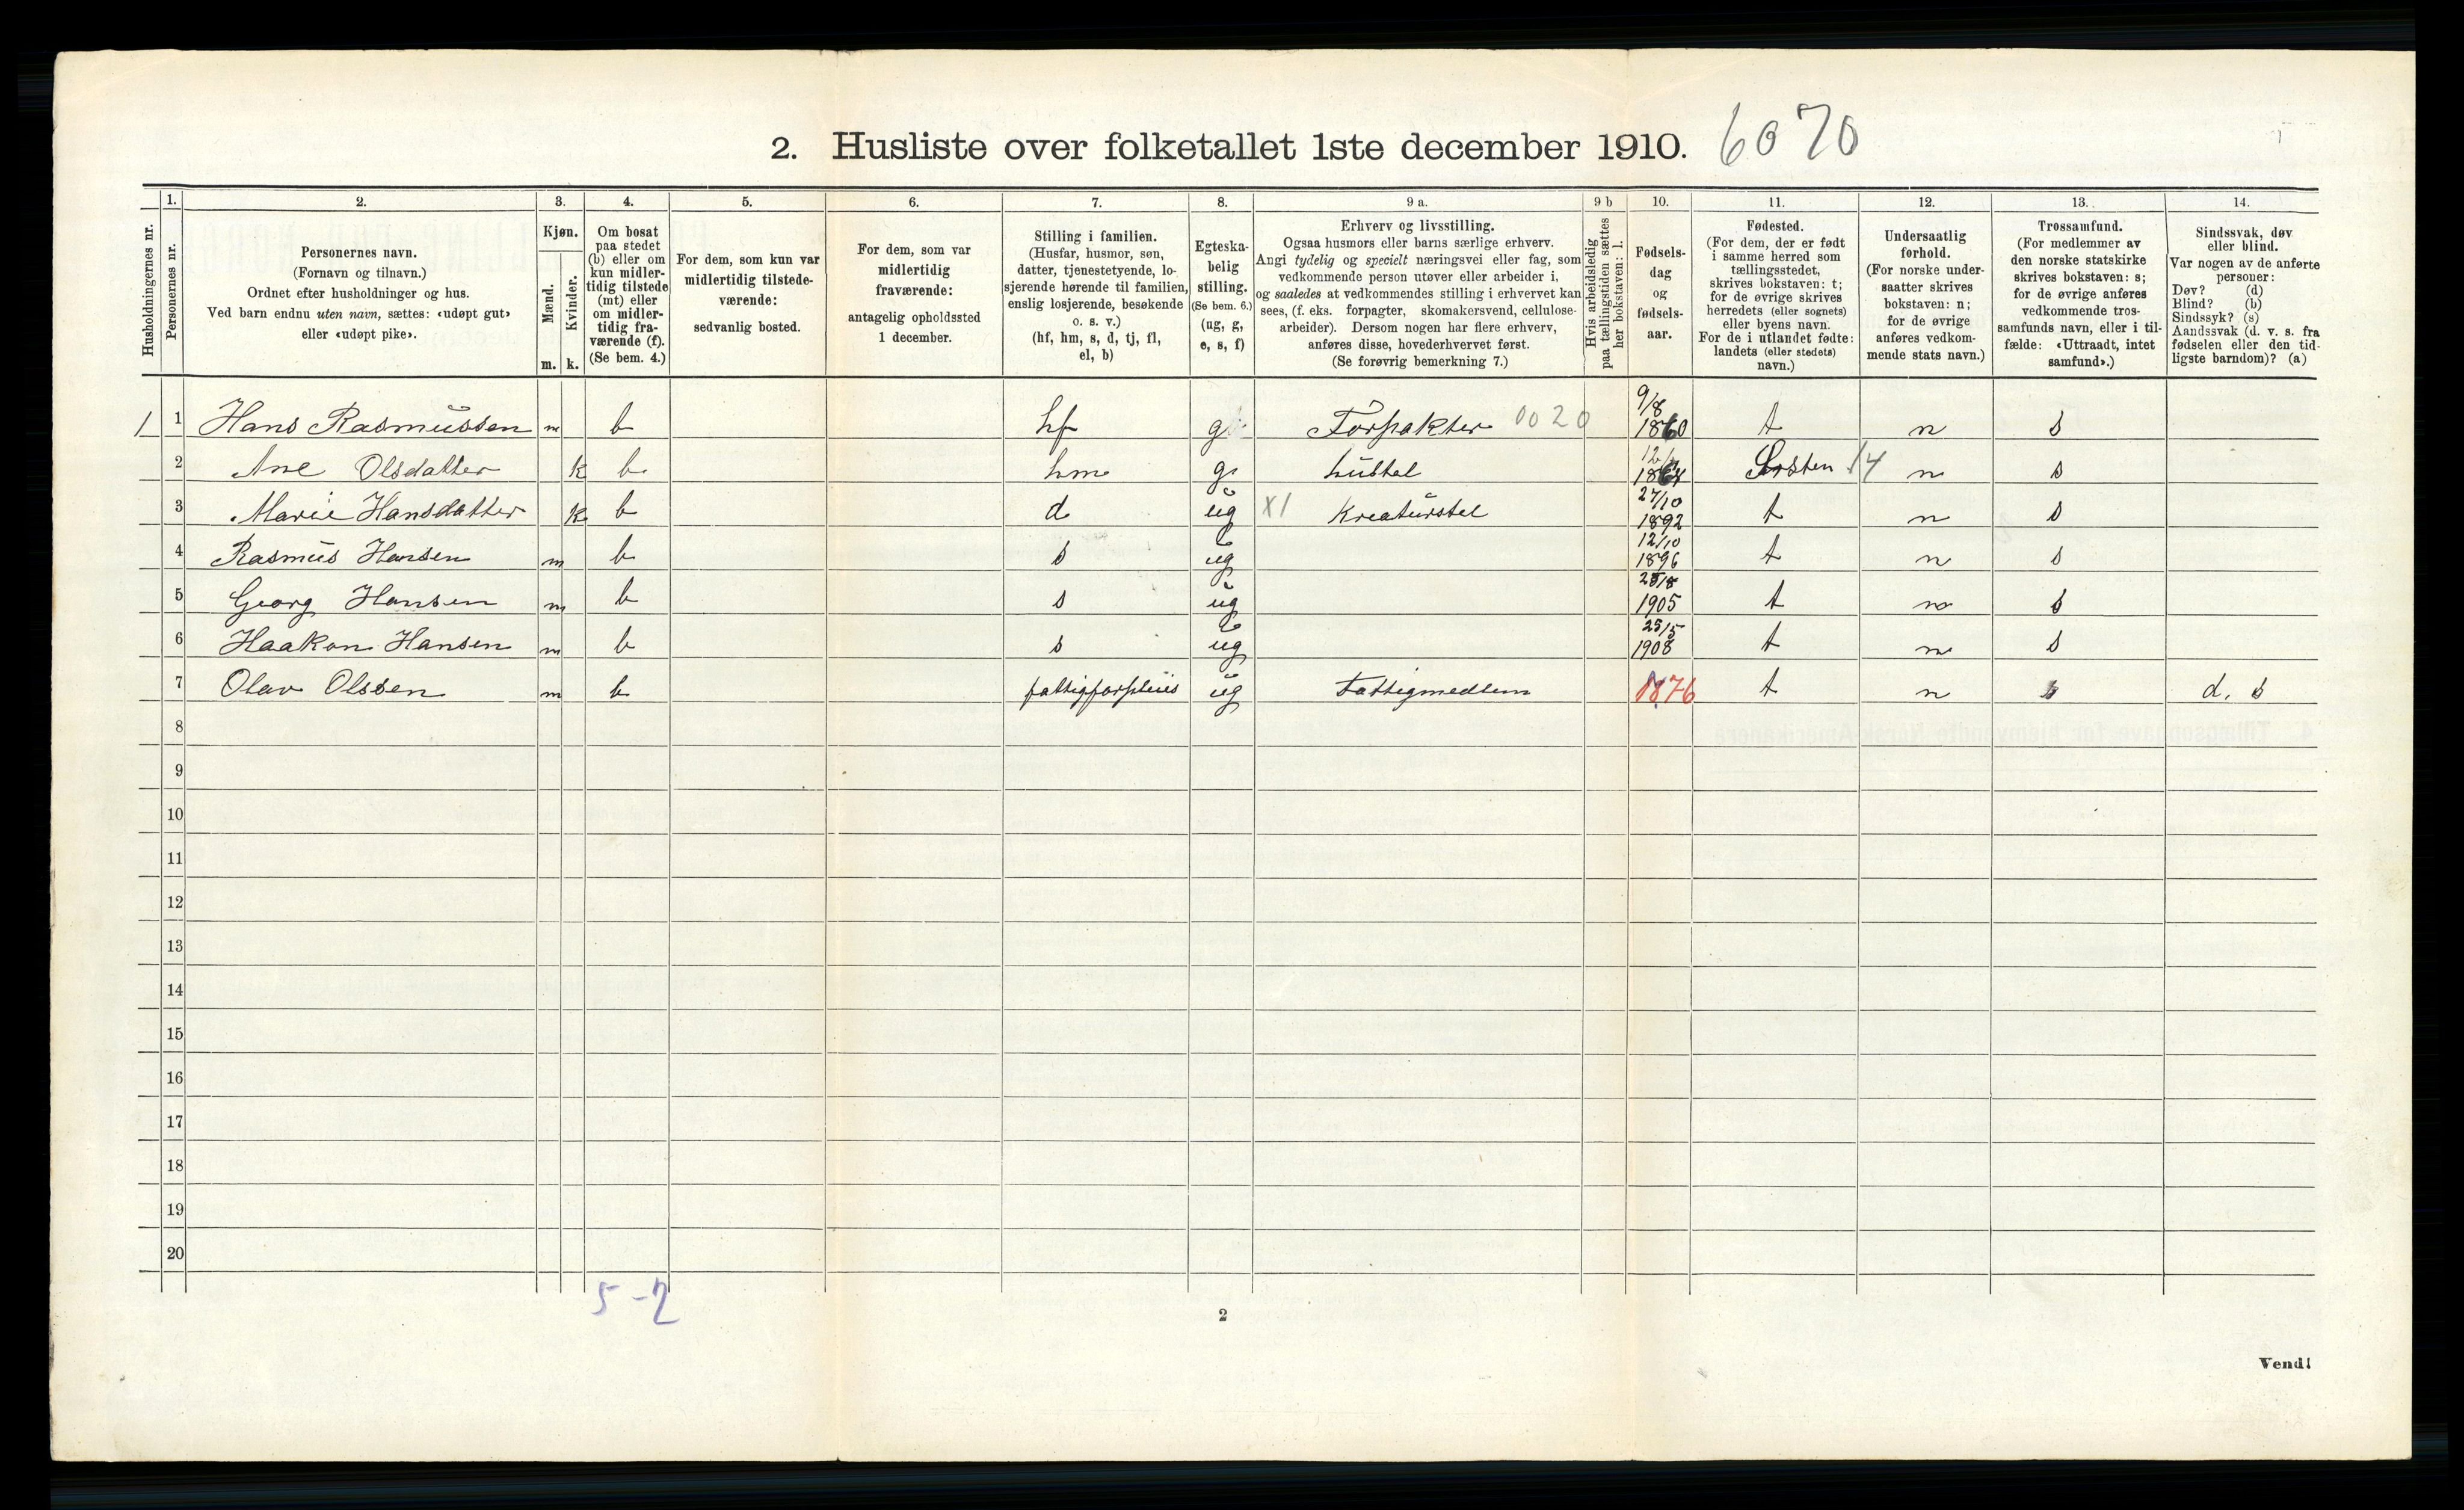 2. Husliste over folketallet 1ste december 1910. 6070
1. 2. 3. 4. 5. 6. 7. 8. 9 a. 9 b 10. 11. 12. 13. 14.
Husholdningernes nr.
Personernes nr.
Personernes navn.
(Fornavn og tilnavn.)
Ordnet efter husholdninger og hus.
Ved barn endnu uten navn, sættes: «udøpt gut»
eller «udøpt pike».
Kjøn.
Mænd.
Kvinder.
m. k.
Om bosat
paa stedet
(b) eller om
kun midler-
tidig tilstede
(mt) eller
om midler-
tidig fra-
værende (f).
(Se bem. 4.)
For dem, som kun var
midlertidig tilstede-
værende:
sedvanlig bosted.
For dem, som var
midlertidig
fraværende:
antagelig opholdssted
1 december.
Stilling i familien.
(Husfar, husmor, søn,
datter, tjenestetyende, lo-
sjerende hørende til familien,
enslig losjerende, besøkende
o. s. v.)
(hf, hm, s, d, tj, fl,
el, b)
Egteska-
belig
stilling.
(Se bem. 6.)
(ug, g,
e, s, f)
Erhverv og livsstilling.
Ogsaa husmors eller barns særlige erhverv.
Angi tydelig og specielt næringsvei eller fag, som
vedkommende person utøver eller arbeider i,
og saaledes at vedkommendes stilling i erhvervet kan
sees, (f. eks. forpagter, skomakersvend, cellulose-
arbeider). Dersom nogen har flere erhverv,
anføres disse, hovederhvervet først.
(Se forøvrig bemerkning 7.)
Hvis arbeidsledig
paa tællingstiden sættes
her bokstaven: l.
Fødsels-
dag
og
fødsels-
aar.
Fødested.
(For dem, der er født
i samme herred som
tællingsstedet,
skrives bokstaven: t;
for de øvrige skrives
herredets (eller sognets)
eller byens navn.
For de i utlandet fødte:
landets (eller stedets)
navn.)
Undersaatlig
forhold.
(For norske under-
saatter skrives
bokstaven: n;
for de øvrige
anføres vedkom-
mende stats navn.)
Trossamfund.
(For medlemmer av
den norske statskirke
skrives bokstaven: s;
for de øvrige anføres
vedkommende tros-
samfunds navn, eller i til-
fælde: «Uttraadt, intet
samfund».)
Sindssvak, døv
eller blind.
Var nogen av de anførte
personer:
Døv? (d)
Blind? (b)
Sindssyk? (s)
Aandssvak (d. v. s. fra
fødselen eller den tid-
ligste barndom)? (a)
1 1 Hans Rasmussen m b hf g Forpakter 0020 9/8 1860 t n s
2 Ane Olsdatter k b hm g hustel 1864 14 n s
3 Marie Hansdatter k b d ug X1 Kreaturstel 27/10 1892 t n s
4 Rasmus Hansen m b s ug 12/10 1896 t n s
5 Georg Hansen m b s ug 25/8 1905 t n s
6 Haakon Hansen m b s ug 25/5 1908 t n s
7 Olav Olssen m b fattigforpleiis ug Fattigmedlem 1876 t n s d. s
8
9
10
11
12
13
14
15
16
17
18
19
20
5-2
2
Vend!